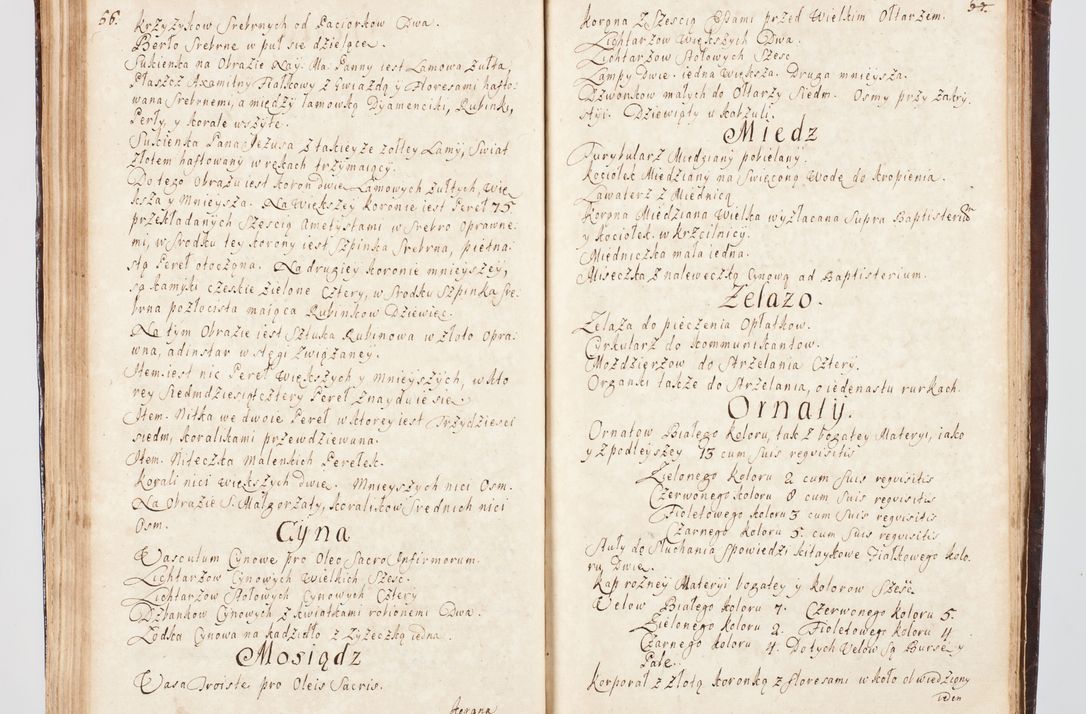 56.
Krzyzykow Srebrnych od Paciorkow Dwa.
Berło Srebrne w puł sie dzielące.
Sukienka na Obrazie Nay: Ma: Panny iest Lamowa zułta,
Płaszcz Axamitny Fiałkowy z Gwiazdą y Floresami hafto-
wana Srebrnemi, a między lamowką Dyamenciki, Rubinki,
Perły, y korale wszyte.
Sukienka Pana Jezusa z takieyze zołtey Lamy, Swiat
złotem haftowany w rękach trzymaiący.
Do tego Obrazu iest koron dwie Lamowych zułtych, Wię-
ksza y Mnieysza. Na Większey koronie iest Pereł 75
przekładanych Sześcią Ametystami w Srebro Oprawne-
mi, w Srodku tey korony iest Szpinka Srebrna, pietna-
stą Pereł otoczona. Na drugiey koronie mnieyszey,
są kamyki czeskie zielone Cztery, w Srodku Szpinka Sre-
brna pozłocista maiąca Rubinkow Dziewięc.
Na tym Obrazie iest Sztuka Rubinowa w złoto Opra-
wna, ad instar wstęgi związaney.
Item. iest nic Pereł Większych y Mnieyszych, w kto-
rey Siedmdziesiąt cztery Pereł znayduie sie
Item. Nitka we dwoie Pereł w ktorey iest Trzydzieści
siedm, koralikami przewdziewana.
Item. Niteczka malenkich Perełek.
Korali nici większych dwie. Mnieyszych nici Osm.
Na Obrazie S. Małgorzaty, koralikow Srednich nici
Osm.
Cyna
Vasculum Cynowe pro Oleo Sacro Infirmorum.
Lichtarzow Cynowych Wielkich Szesc.
Lichtarzow Stołowych Cynowych Cztery
Dzbankow Cynowych z kwiatkami robionemi Dwa.
Łodka Cynowa na kadzidło z Łyżeczką iedna.
Mosiądz
Vasa Troiste pro Oleis Sacris.
Korona
57.
Korona z Sześcią Łbami przed Wielkim Ołtarzem.
Lichtarzow Większych Dwa.
Lichtarzow Stołowych Szesc
Lampy Dwie. iedna Większa. Druga mnieysza.
Dzwonkow małych do Ołtarzy Siedm. Osmy przy Zakry-
styi. Dziewiąty u kabzuli.
Miedz
Turybularz Miedziany pobielany.
Kociołek Miedziany na Swięconą Wodę do kropienia.
Lawaterz z Miednicą
Korona Miedziana Wielka wyzłacana Supra Baptisteriū
y kociołek w krzcilnicy.
Miedniczka mała iedna.
Miseczka z naleweczką Cynową ad Baptisterium.
Zelazo.
Zelaza do pieczenia Opłatkow.
Cyrkularz do kommunikantow.
Mozdzierzow do Strzelania Cztery.
Organki także do Strzelania, o iedenastu rurkach.
Ornaty.
Ornatow Białego koloru, tak z bogatey Materyi, iako
y z podleyszey 13 cum Suis requisitis
Zielonego koloru 2 cum Suis requisitis
Czerwonego koloru 8 cum Suis requisitis
Fioletowego koloru 3 cum Suis requisitis
Czarnego koloru 5. cum Suis requisitis
Stuły do Słuchania Spowiedzi kitaykowe Fiałkowego kolo-
ru Dwie.
Kap rozney Materyi bogatey y kolorow Sześć.
Velow Białego koloru 7. Czerwonego koloru 5.
Zielonego koloru 2. Fioletowego koloru 4
Czarnego koloru 4. Do tych Velow są Bursę y
Palę.
Korporał z złotą koronką z floresami w koło obwiedziony
ieden